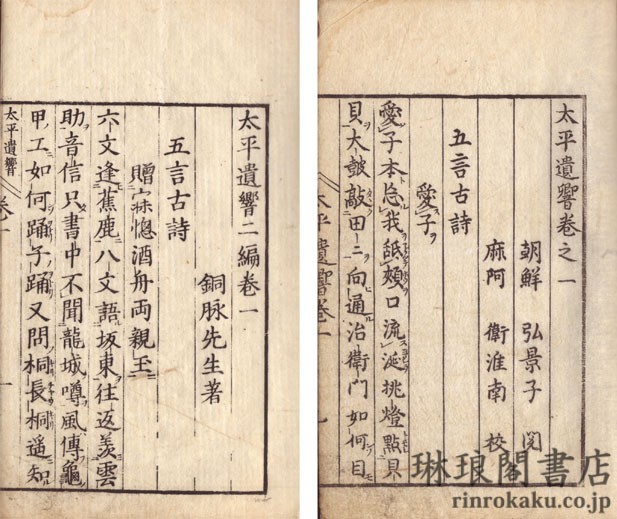 太平遺響卷之一
朝鮮 弘景子 閲
麻阿 衛淮南 校
五言古詩
愛子ヲ
愛子本忘我舐頰口流涎挑燈點貝
貝大皷敲田ニ向通治衛門如何目
太平遺響卷一
太平遺響二編卷一
銅脉先生著
五言古詩
贈寐惚酒舟両親玉
六文逢蕉鹿八文語坂東往返羨雲
助音信只書中不聞龍城噂風傳龜
甲工如何踊子踊又問桐長桐遥知
太平遺響
卷一
一
琳琅閣書店
rinrokaku.co.jp